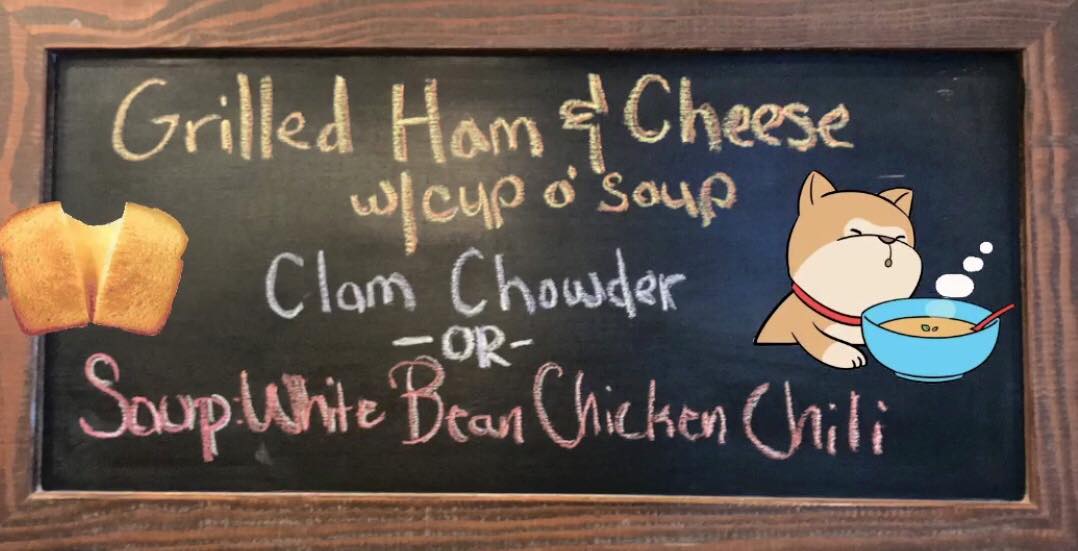 Grilled Ham & Cheese
w/cup o' soup
Clam Chowder
-OR-
Soup: White Bean Chicken Chili